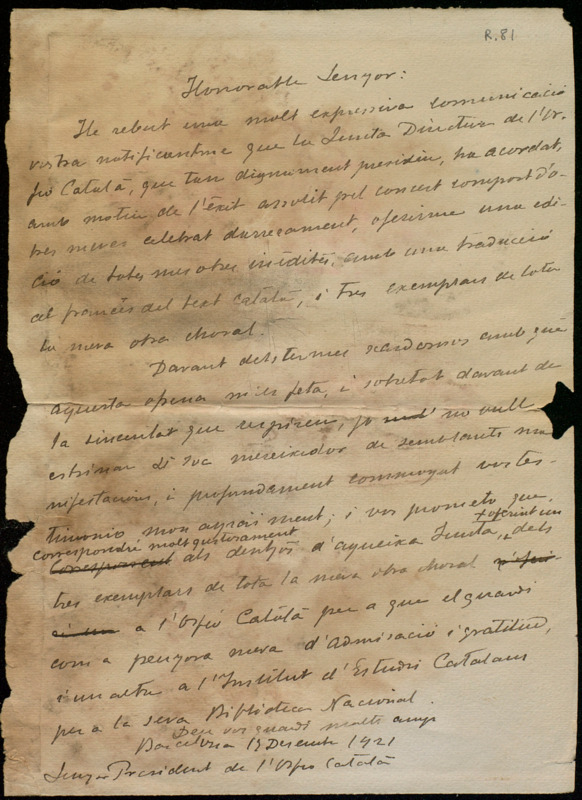 R. 81
Honorable Senyor:
He rebut una molt expressiva comunicació
vostra notificantme que la Junta Directiva de l'Or-
feó Català, que tan dignament presidiu, ha acordat,
amb motiu de l'éxit assolit pel concert compost d'o-
bres meves celebrat darrerament, oferirme una edi-
ció de totes mes obres inédites, amb una traducció
al francés del text català, i tres exemplars de tota
la meva obra choral.
Davant dels termes amb qué
aquesta ofrena m'es feta, i sobretot davant de
la sinceritat que respiren, jo no vull
estrinar si soc mereixedor de semblants ma-
nifestacions, i profundament conmogut vos tes-
timonio mon agraiment; i vos prometo que,
correspondré molt gustosament
als desitjos d'aqueixa Junta, oferint un dels
tres exemplars de tota la meva obra choral
a l'Orfeó Català per a que el guardi
com a penyora meva d'admiració i gratitud,
i un altre a l'Institut d'Estudis Catalans
per a la seva Biblioteca Nacional.
Deu vos guardi molts anys
Barcelona 19 Desembre 1921
Senyor President de l'Orfeó Català